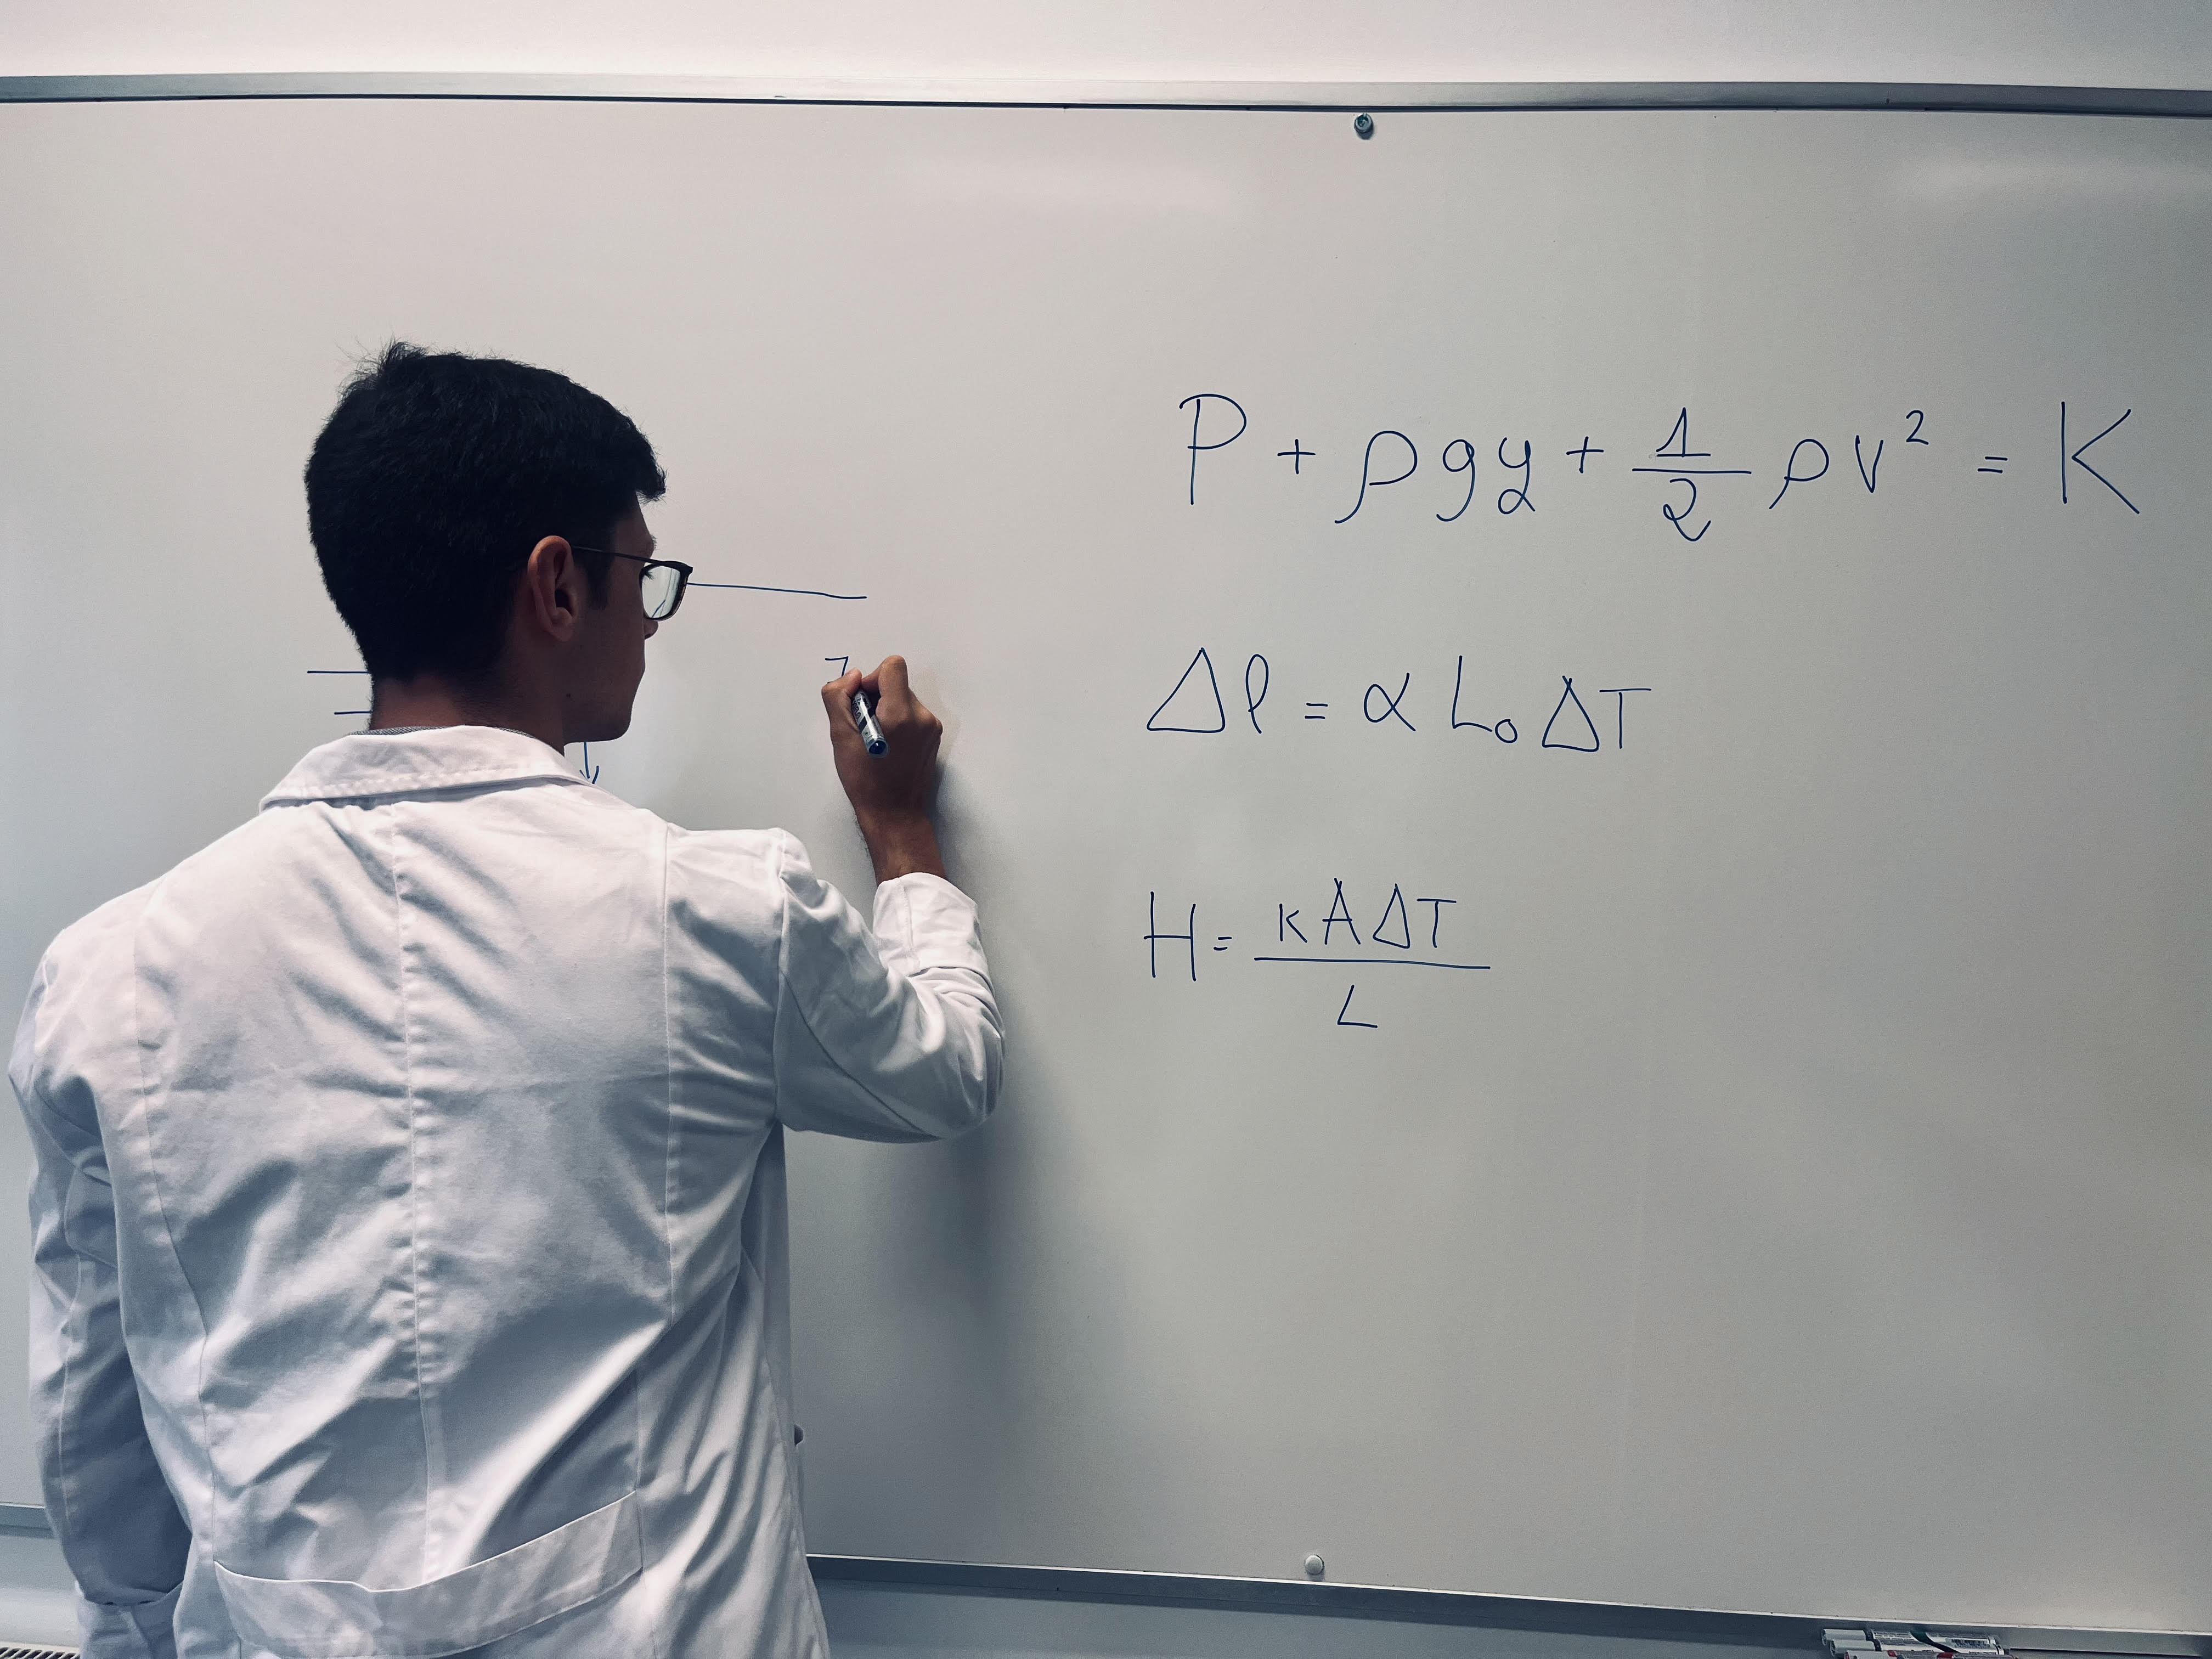 P + ρgy + 1/2 ρv² = K
Δl = α L₀ ΔT
H = kAΔT/L